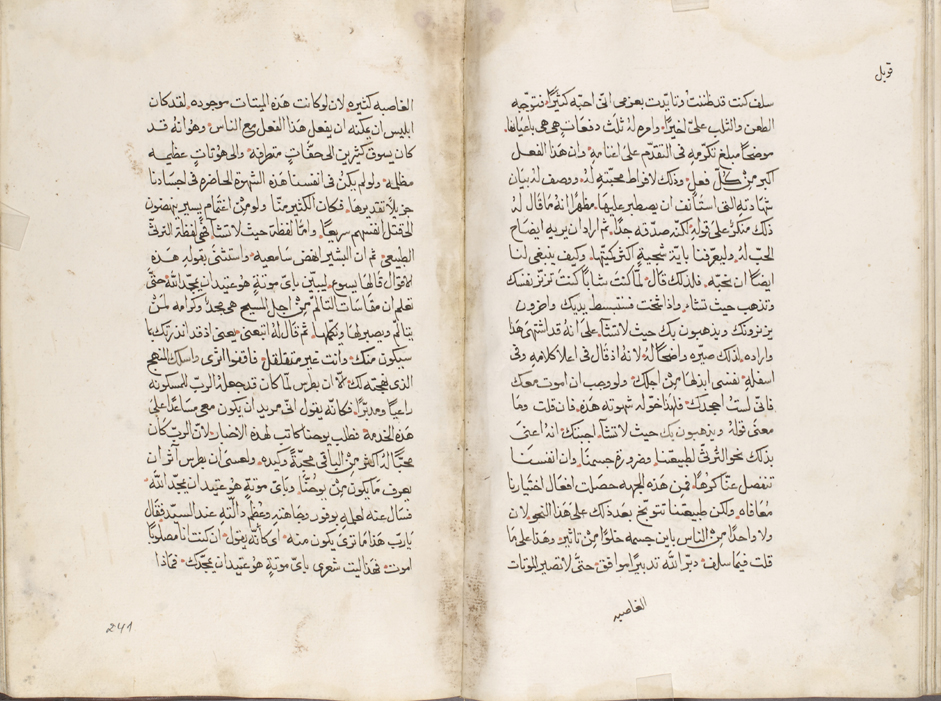 قوبل
سلف كنت قد ظننت وتايّدت بعزمى انّى احبّه كثيرًا فتوجّه
الطعن والثلب علىّ اخيرًا واورد لهُ ثلث دفعاتٍ هى هى باعيانها
موضحًا مبلغ تكرّمه فى التقدّم على اغنامهِ وان هذا الفعل
اكبر من كلّ فعلٍ وذلك لافراط محبّته لهُ ووصف لهُ بيان
شهادته التى استأنف ان يصطبر عليها مظهرًا انهُ ما قال لهُ
ذلك منكرًا على قولهِ لكنّه صدّقه جدًّا ثم اراد ان يريه ايضاح
الحبّ لهُ وليعرّفنا بايّة سجيةٍ اكثر كميّتها وكيف ينبغى لنا
ايضًا ان نحبّه فلذلك قال لمّا كنت شابًا كنت تزنّر نفسك
وتذهب حيث تشاء واذا شخت فستبسط يديك واخرون
يزنرونك ويذهبون بك حيث لا تشآء على انهُ قد اشتهى هذا
واراده لذلك صيّره واضحًا لهُ لانهُ اذ قال فى اعلا كلامهِ وفى
اسفلهِ نفسى ابذلها من اجلك ولو وجب ان اموت معك
فانّى لستُ اجحدك فلهذا خوّلهُ شهوته هذه فان قلت وما
معنى قولهُ ويذهبون بك حيث لا تشآء اجبتك انهُ اعنى
بذلك نحو الترثّى لطبيعتنا وضرورة جسمنا وان انفسنا
تنفصل عنّا كرهًا فمن هذه الجهه حصلت افعال اختيارنا
معافاه ولكن طبيعتنا تتوبّخ بعد ذلك على هذا النحو لان
ولا واحدًا من الناس باين جسمه خلوًا من تاثيرٍ وهذا على ما
قلت فيما سلف دبّر الله تدبيرًا موافقٍ حتى لا تصير الموتات
الغاصبه
الغاصبه كثيره لان لو كانت هذه الميتات موجوده لقد كان
ابليس ان يمكنه ان يفعل هذا الفعل مع الناس وهو انه قد
كان يسوق كثيرين الى حقّاتٍ متطرفه والى هوّتاتٍ عظيمه
مظلمه ولو لم يكن فى انفسنا هذه الشهوة الحاضره فى اجسادنا
جزيلًا تقديرها فكان الكثير منّا ولو من اغتمامٍ يسير ينهضون
الى قتل انفسهم سريعًا وامّا لفظة حيث لا تشآء فهى لفظة الترثّى
الطبيعى ثم ان البشير انهض سامعيه واستثنى بقولهِ هذه
الاقوال قالها يسوع ليبيّن باىّ موتةٍ هو عتيد ان يمجّد الله حتى
تعلم ان مقاسات التالّم من اجل المسيح هى مجدٌ وكرامه لمن
يتالم ويصير لها ويكملها ثم قال لهُ اتبعنى يعنى اذ قد انذرتك بما
سيكون منك وانت غير متقلقل فاقفوا اثرى واسلك المنهج
الذى نهجته لك لا ان بطرس لمّا كان قد جعلهُ الربّ للمسكونه
راعيًا ومدبّرًا فكانّه يقول انّى مريد ان يكون معى مساعدًا على
هذه الخدمه فطلب يوحنا كاتب لهذه الاخبار لان الربّ كان
محبًّا لهُ اكثر من الباقى محبّةً وكيده ولعسى ان بطرس آثر ان
يعرف ما يكون من يوحنّا وباىّ موتةٍ هو عتيد ان يمجّد الله
فسال عنه لعلمهِ بوفور وجاهتهِ وعظم دالّتهِ عند السيد فقال
يا ربّ هذا ما ترى يكون منه اى كأنّه يقول ان كنت انا مصلوبًا
اموت فهذا ليت شعرى باىّ موتةٍ هو عتيد ان يمجّدك فماذا
241